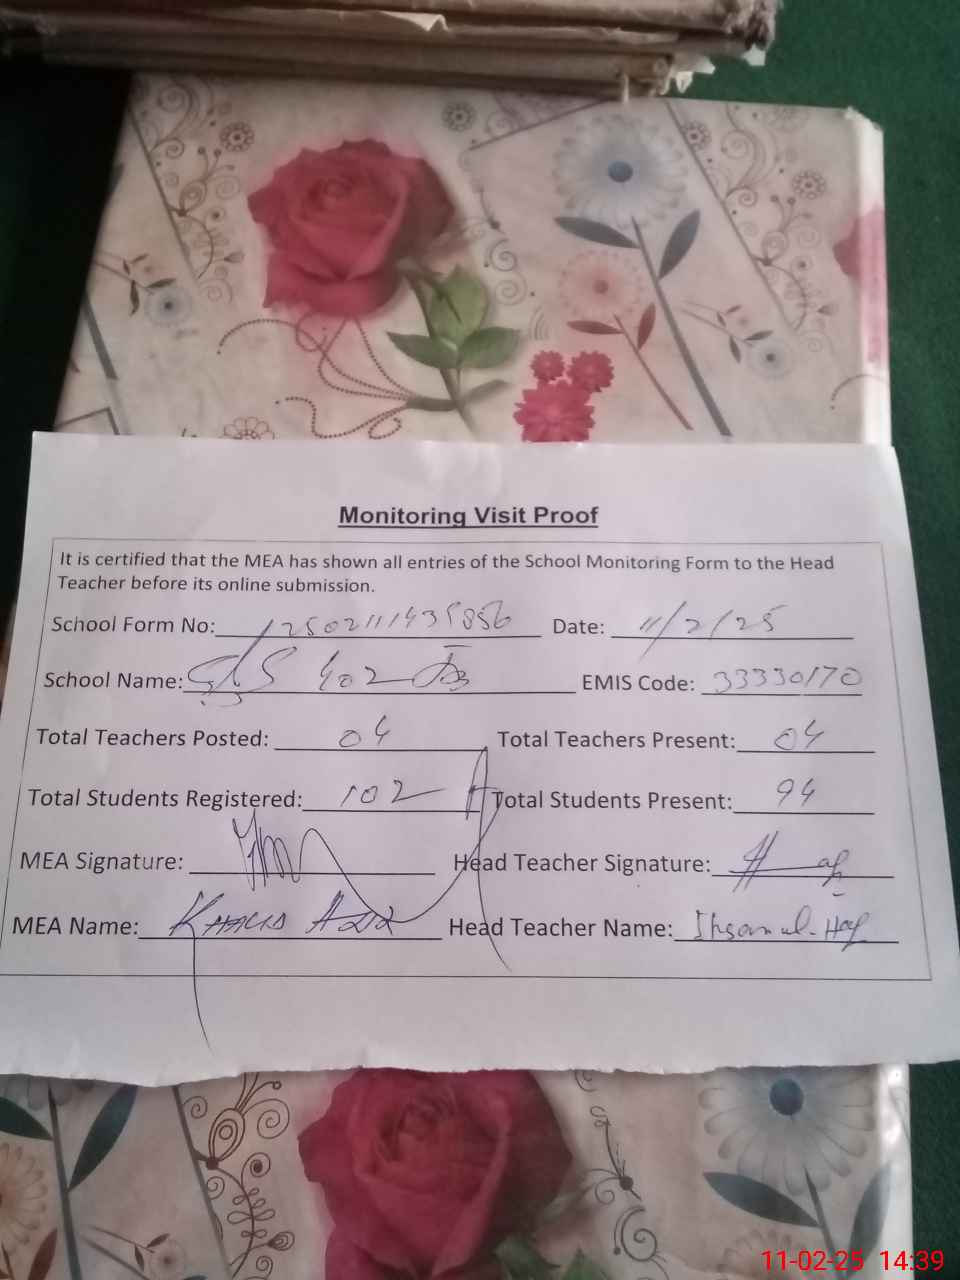 Monitoring Visit Proof
It is certified that the MEA has shown all entries of the School Monitoring Form to the Head
Teacher before its online submission.
School Form No: 1250211143585​6 Date: 11/2/25
School Name: 402 EMIS Code: 33330170
Total Teachers Posted: 04 Total Teachers Present: 04
Total Students Registered: 102 Total Students Present: 94
MEA Signature: Head Teacher Signature:
MEA Name: Khalid Aziz Head Teacher Name: Ihsan ul-Haq
11-02-25 14:39